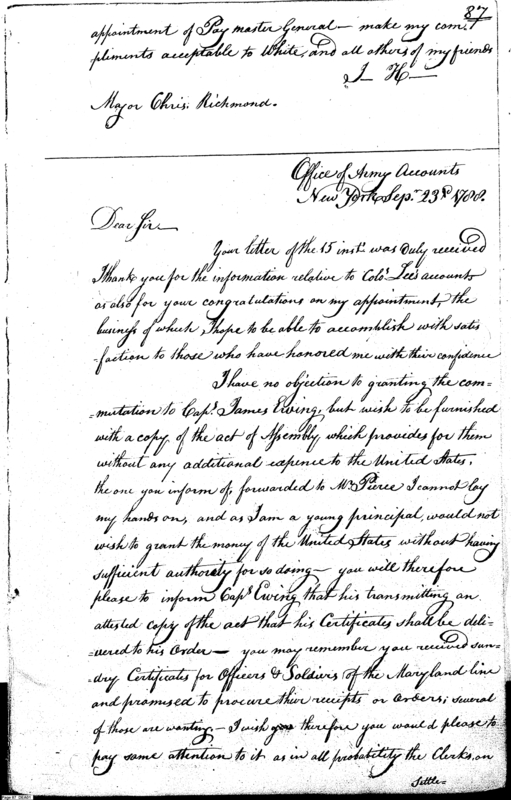 87
appointment of Pay master General — make my com-
pliments acceptable to White, and all others of my friends
I H—
Major Chris: Richmond.
Office of Army Accounts
New York Sepr 23d 1788.
Dear Sir
Your letter of the 15 inst. was duly received
I thank you for the information relative to Colo. Lee's accounts
as also for your congratulations on my appointment, the
business of which, I hope to be able to accomplish with satis
-faction to those who have honored me with their confidence
I have no objection to granting the com-
=mutation to Capt. James Ewing, but wish to be furnished
with a copy of the act of Assembly which provides for them
without any additional expence to the United States,
the one you inform of, forwarded to Mr Pierce I cannot lay
my hands on, and as I am a young principal, would not
wish to grant the money of the United States without having
sufficient authority for so doing — you will therefore
please to inform Capt Ewing that his transmitting an
attested copy of the act that his Certificates shall be deli-
=vered to his Order — you may remember you received sun-
=dry Certificates for Officers & Soldiers of the Maryland line
and promised to procure their receipts or orders; several
of those are wanting — I wish therefore you would please to
pay some attention to it as in all probability the Clerks, on
Settle=